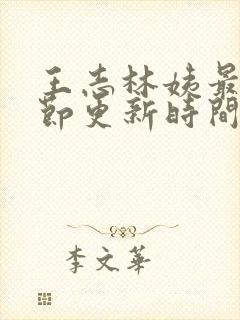 王志林姨最
節更新時間
李文華